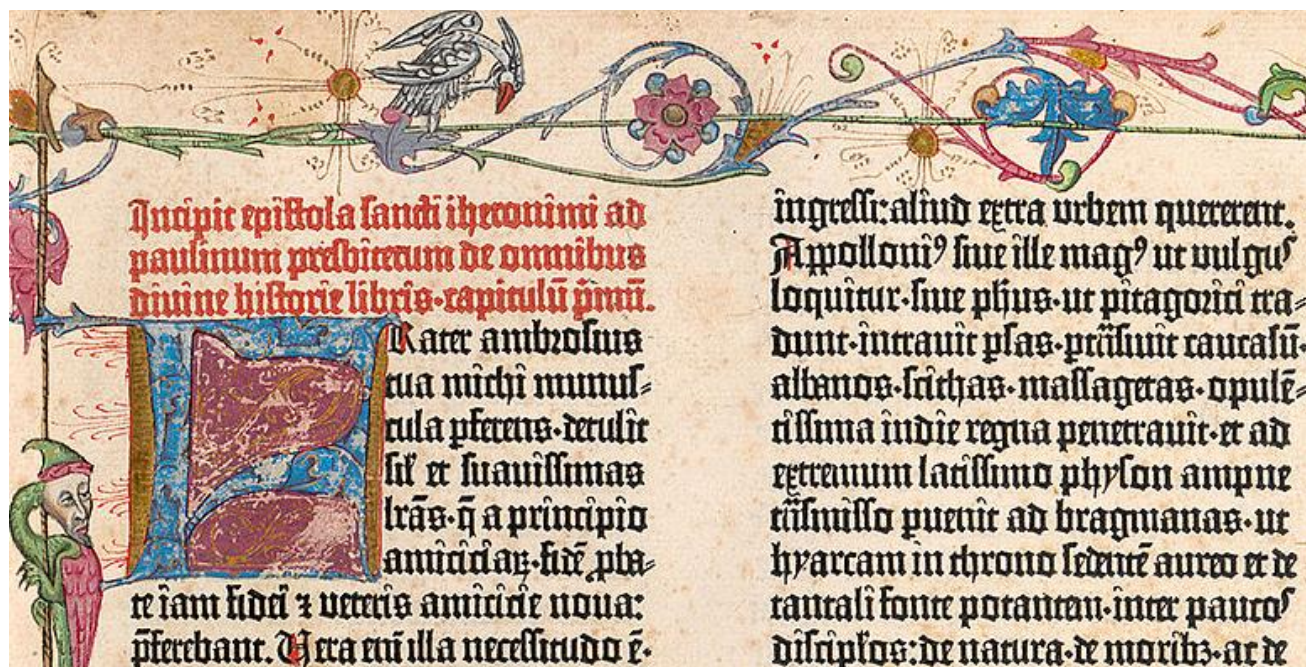 Incipit epistola sancti iheronimi ad
paulinum presbiterum de omnibus
divine historie libris·capitulū p̄mū.
FRater ambrosius
tua michi munus⸗
cula ꝑferens·detulit
sil̛ et suavissimas
lr̄as·q̄ a principio
amiciciaꝝ·fidē ꝓba⸗
te iam fidei ⁊ veteris amicicie noua:
p̄ferebant. Vera eni̅ illa necessitudo ē·
ingressi:aliud extra urbem quererent.
Appolloniꝰ sive ille magꝰ ut vulgus
loquitur·sive ph̄us·ut pitagorici tra⸗
dunt·intravit ꝑsas·ꝑtrāsivit caucasū·
albanos·scithas·massagetas·opulē⸗
tissima indie regna penetravit·et ad
extremum latissimo physon ampne
trāsmisso ꝑuenit ad bragmanas·ut
hyarcam in throno sedentē aureo et de
tantali fonte potantem·inter paucos
discipl̄os:de natura·de moribꝫ·ac de